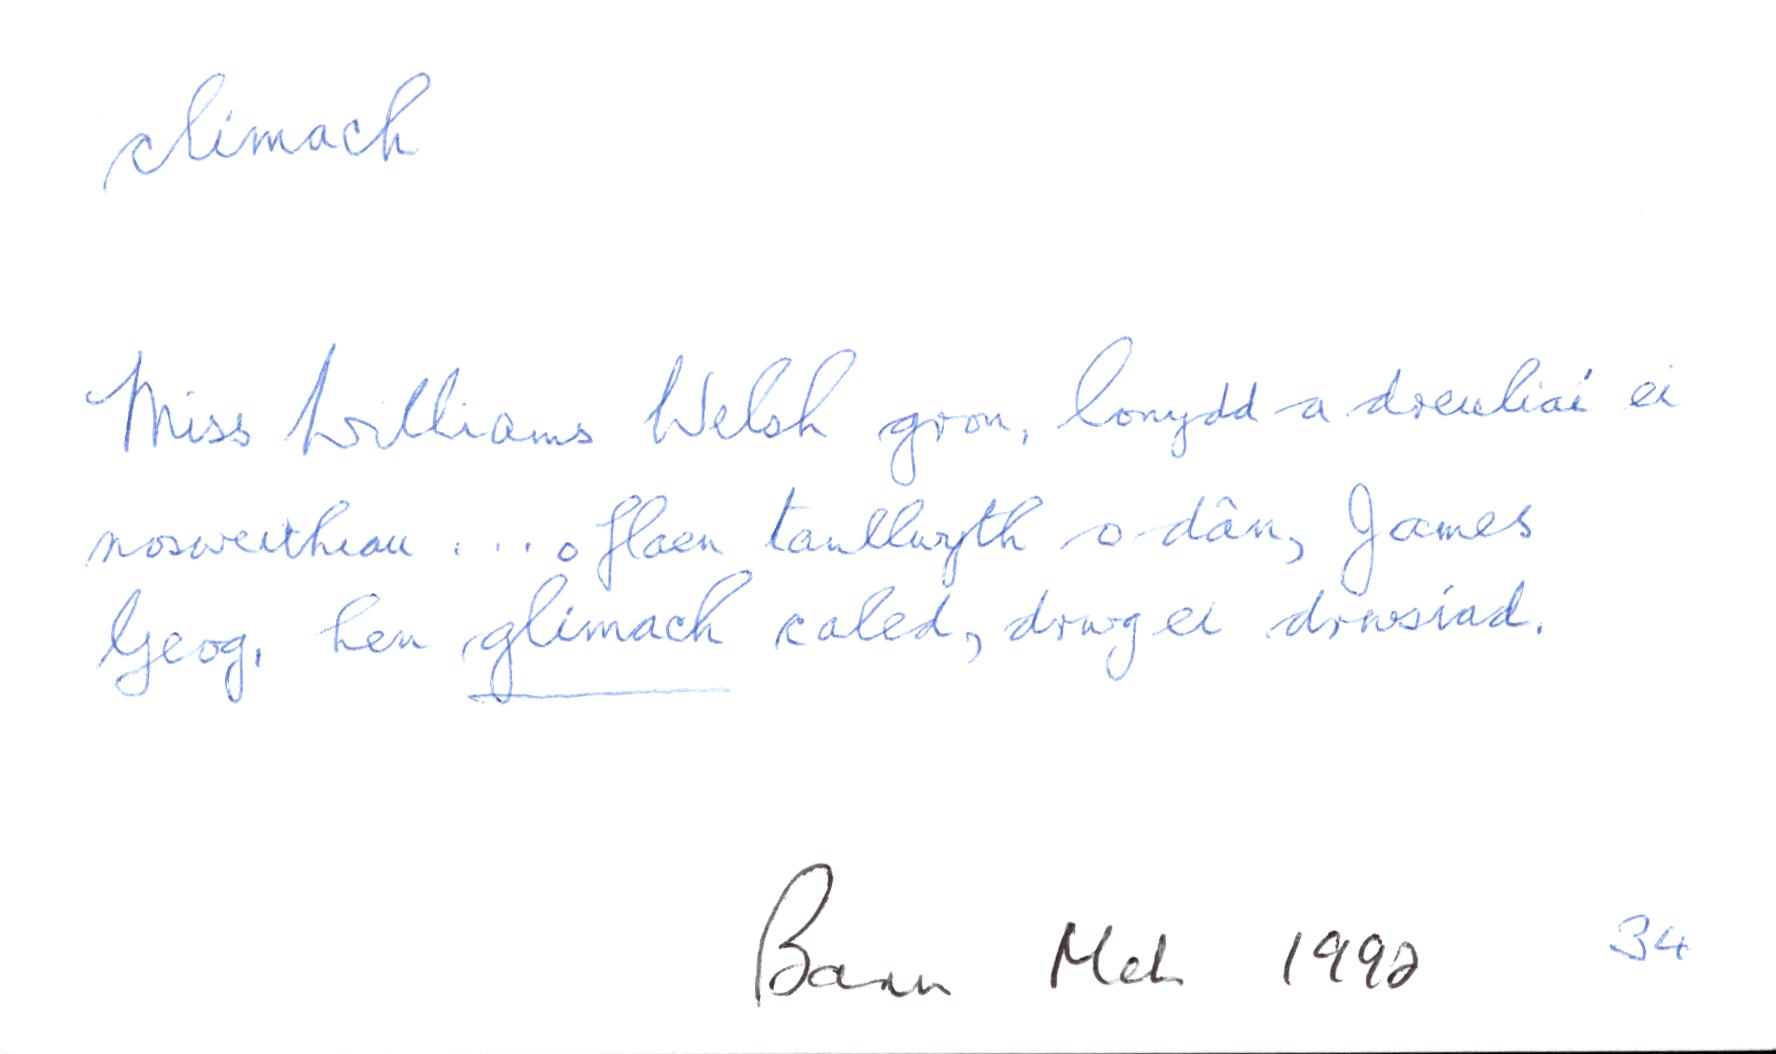 climach
Miss Williams Welsh gron, lonydd a dreuliai ei
nosweithiau .... o flaen tanllwyth o dân, James
Geog, hen glimach caled, drwg ei drwsiad.
Barn Meh 1992 34